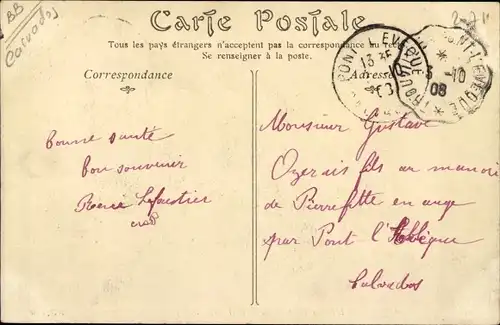 BB
Calvados
Carte Postale
Tous les pays étrangers n'acceptent pas la correspondance au
Se renseigner à la poste.
Correspondance
Adresse
PONT L'EVEQUE
08
Bonne santé
bon souvenir
Monsieur Gustave
Ozerais fils au manoir
de Pierrefitte en auge
par Pont l'Evêque
Calvados